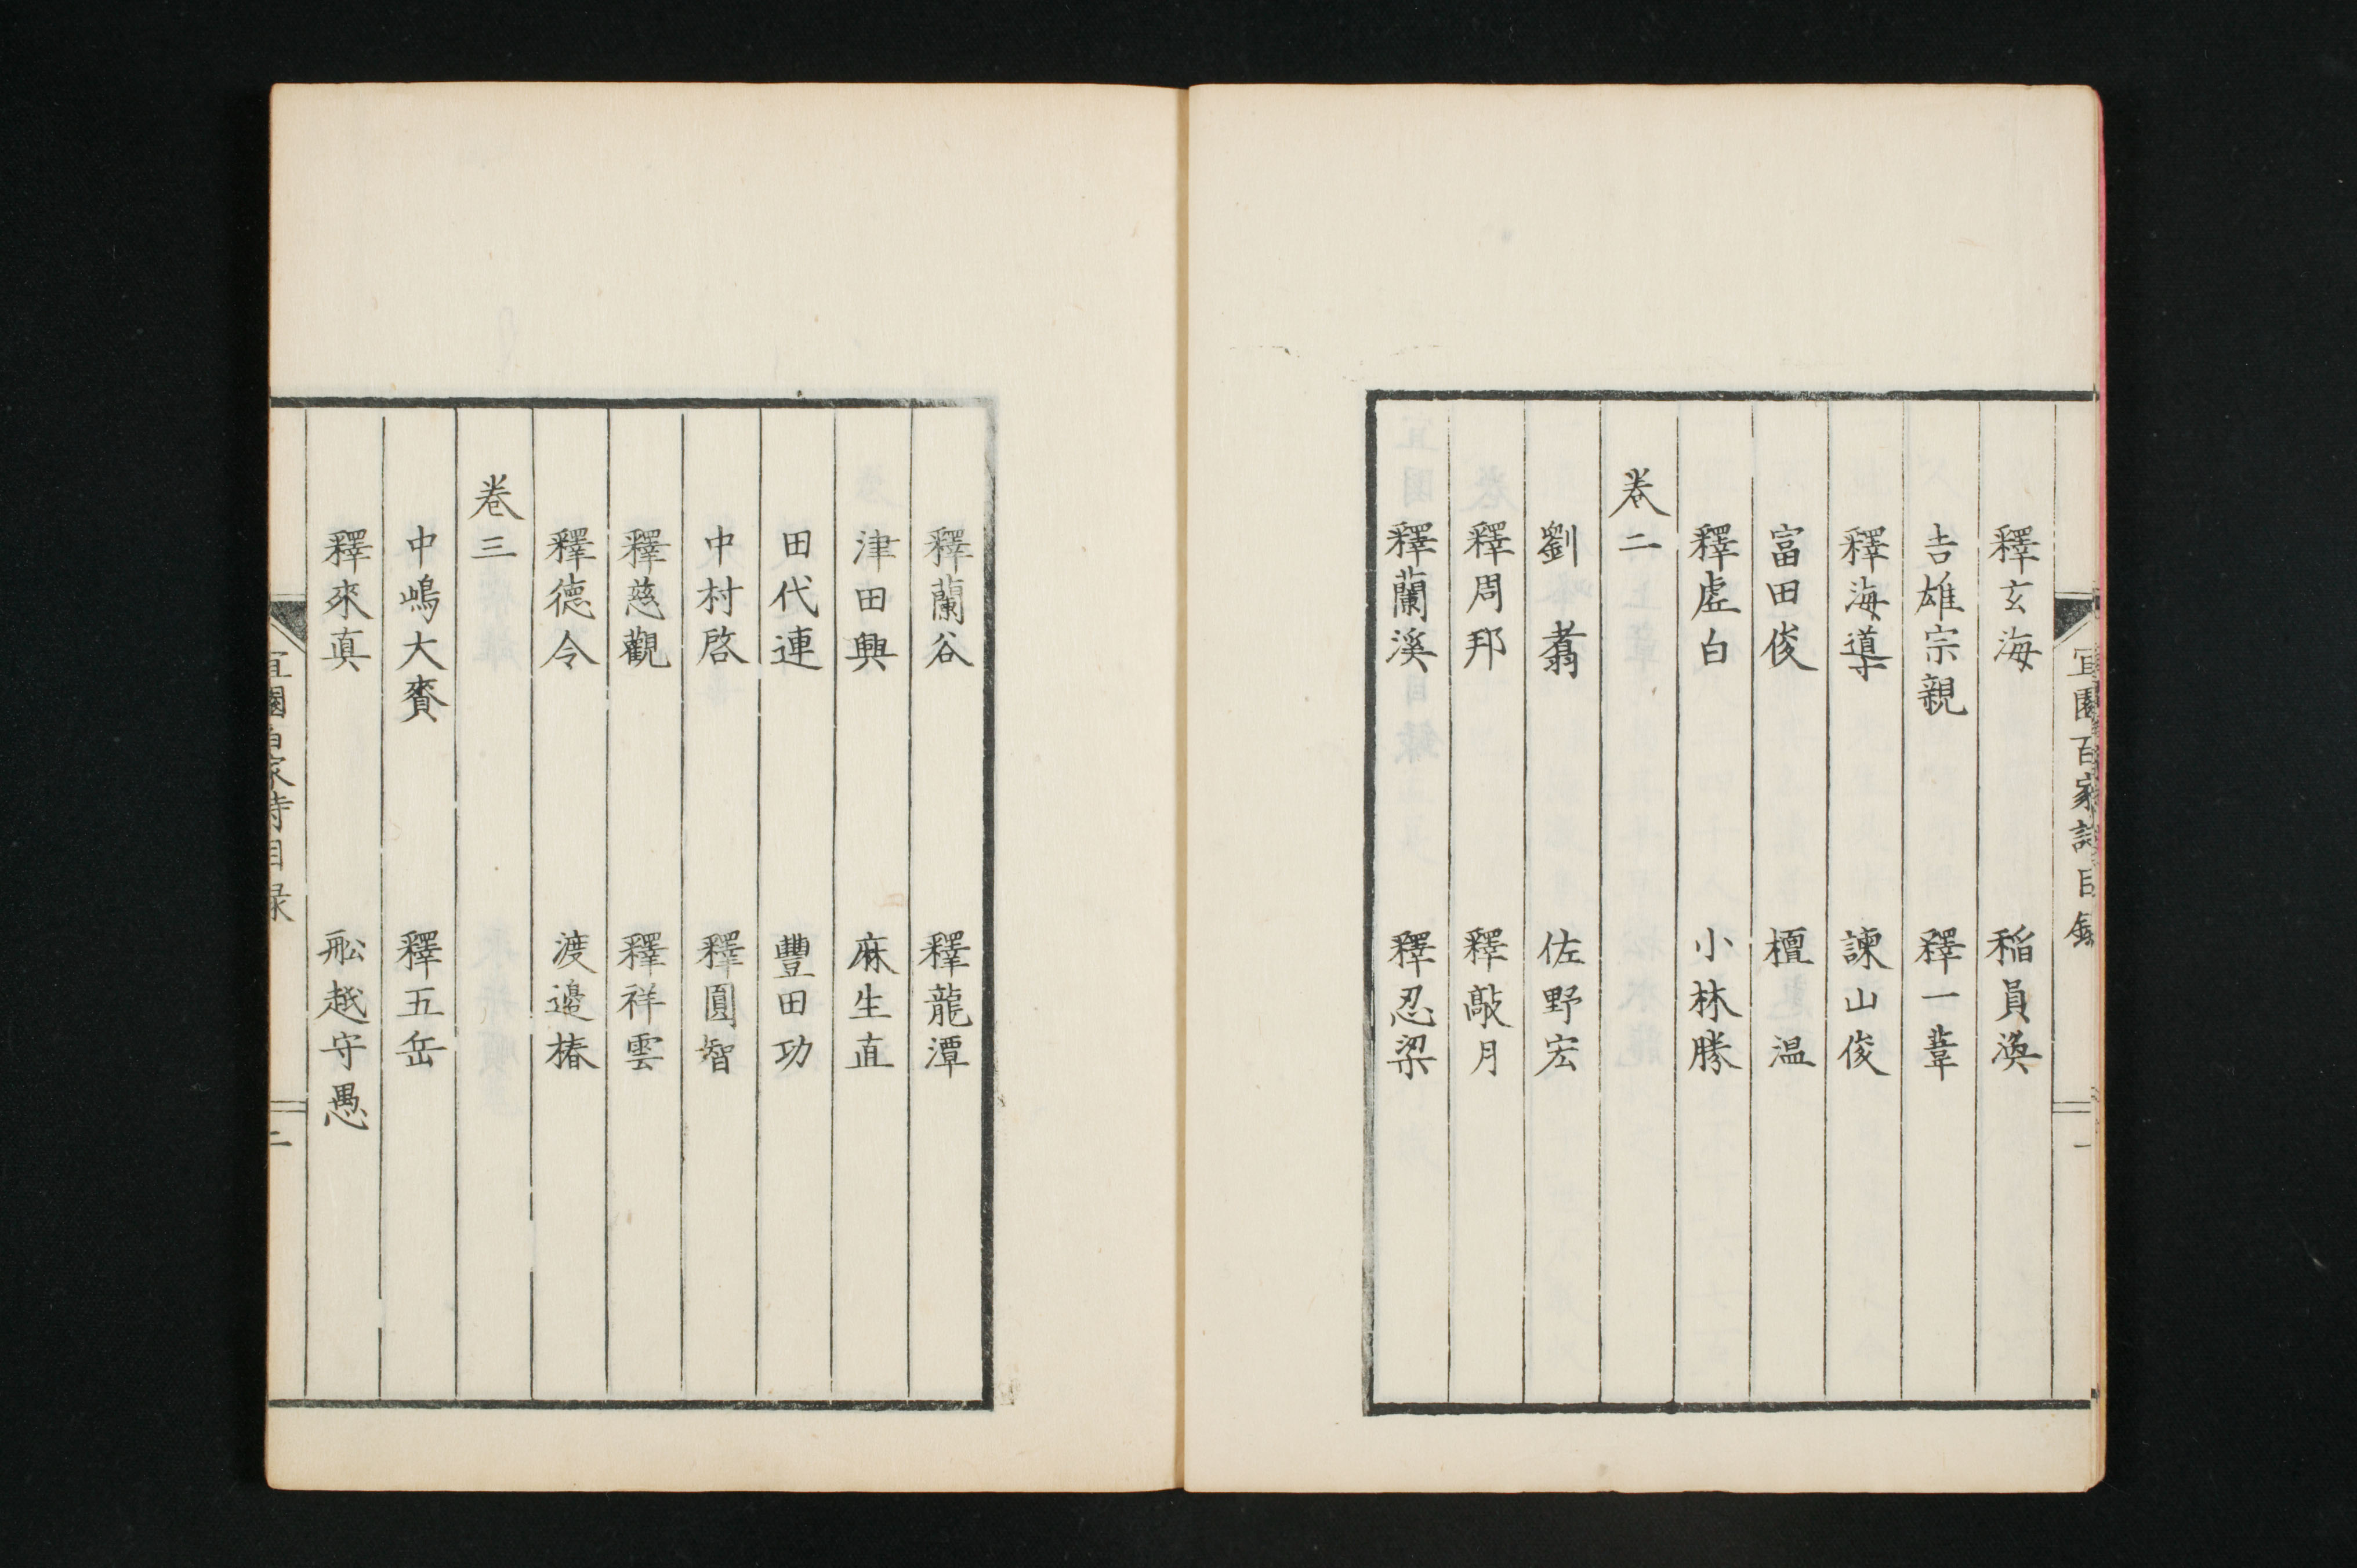 宜園百家詩目錄 一
釋玄海 稲員渙
吉雄宗親 釋一葦
釋海導 諫山俊
富田俊 檀温
釋虚白 小林勝
卷二
劉翥 佐野宏
釋周邦 釋敲月
釋蘭溪 釋忍梁
釋蘭谷 釋龍潭
津田興 麻生直
田代連 豐田功
中村啓 釋圓智
釋慈觀 釋祥雲
釋德令 渡邉椿
卷三
中嶋大賚 釋五岳
釋來真 舩越守愚
宜園百家詩目録 二